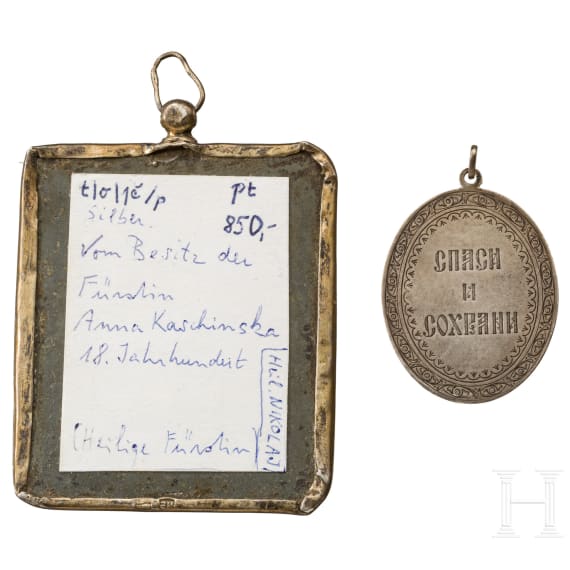 t/o/jč/p pt
Silber. 850,-
Vom Besitz der
Fürstin
Anna Kaschinska
18. Jahrhundert
(Heilige Fürstin)
Heil. NIKOLAJ
СПАСИ
И
СОХРАНИ
H